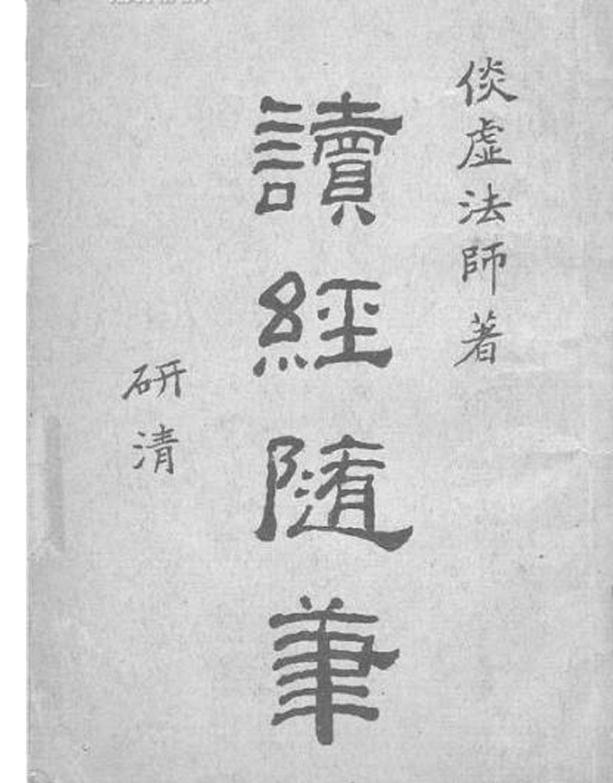 倓虛法師著
讀經隨筆
研清